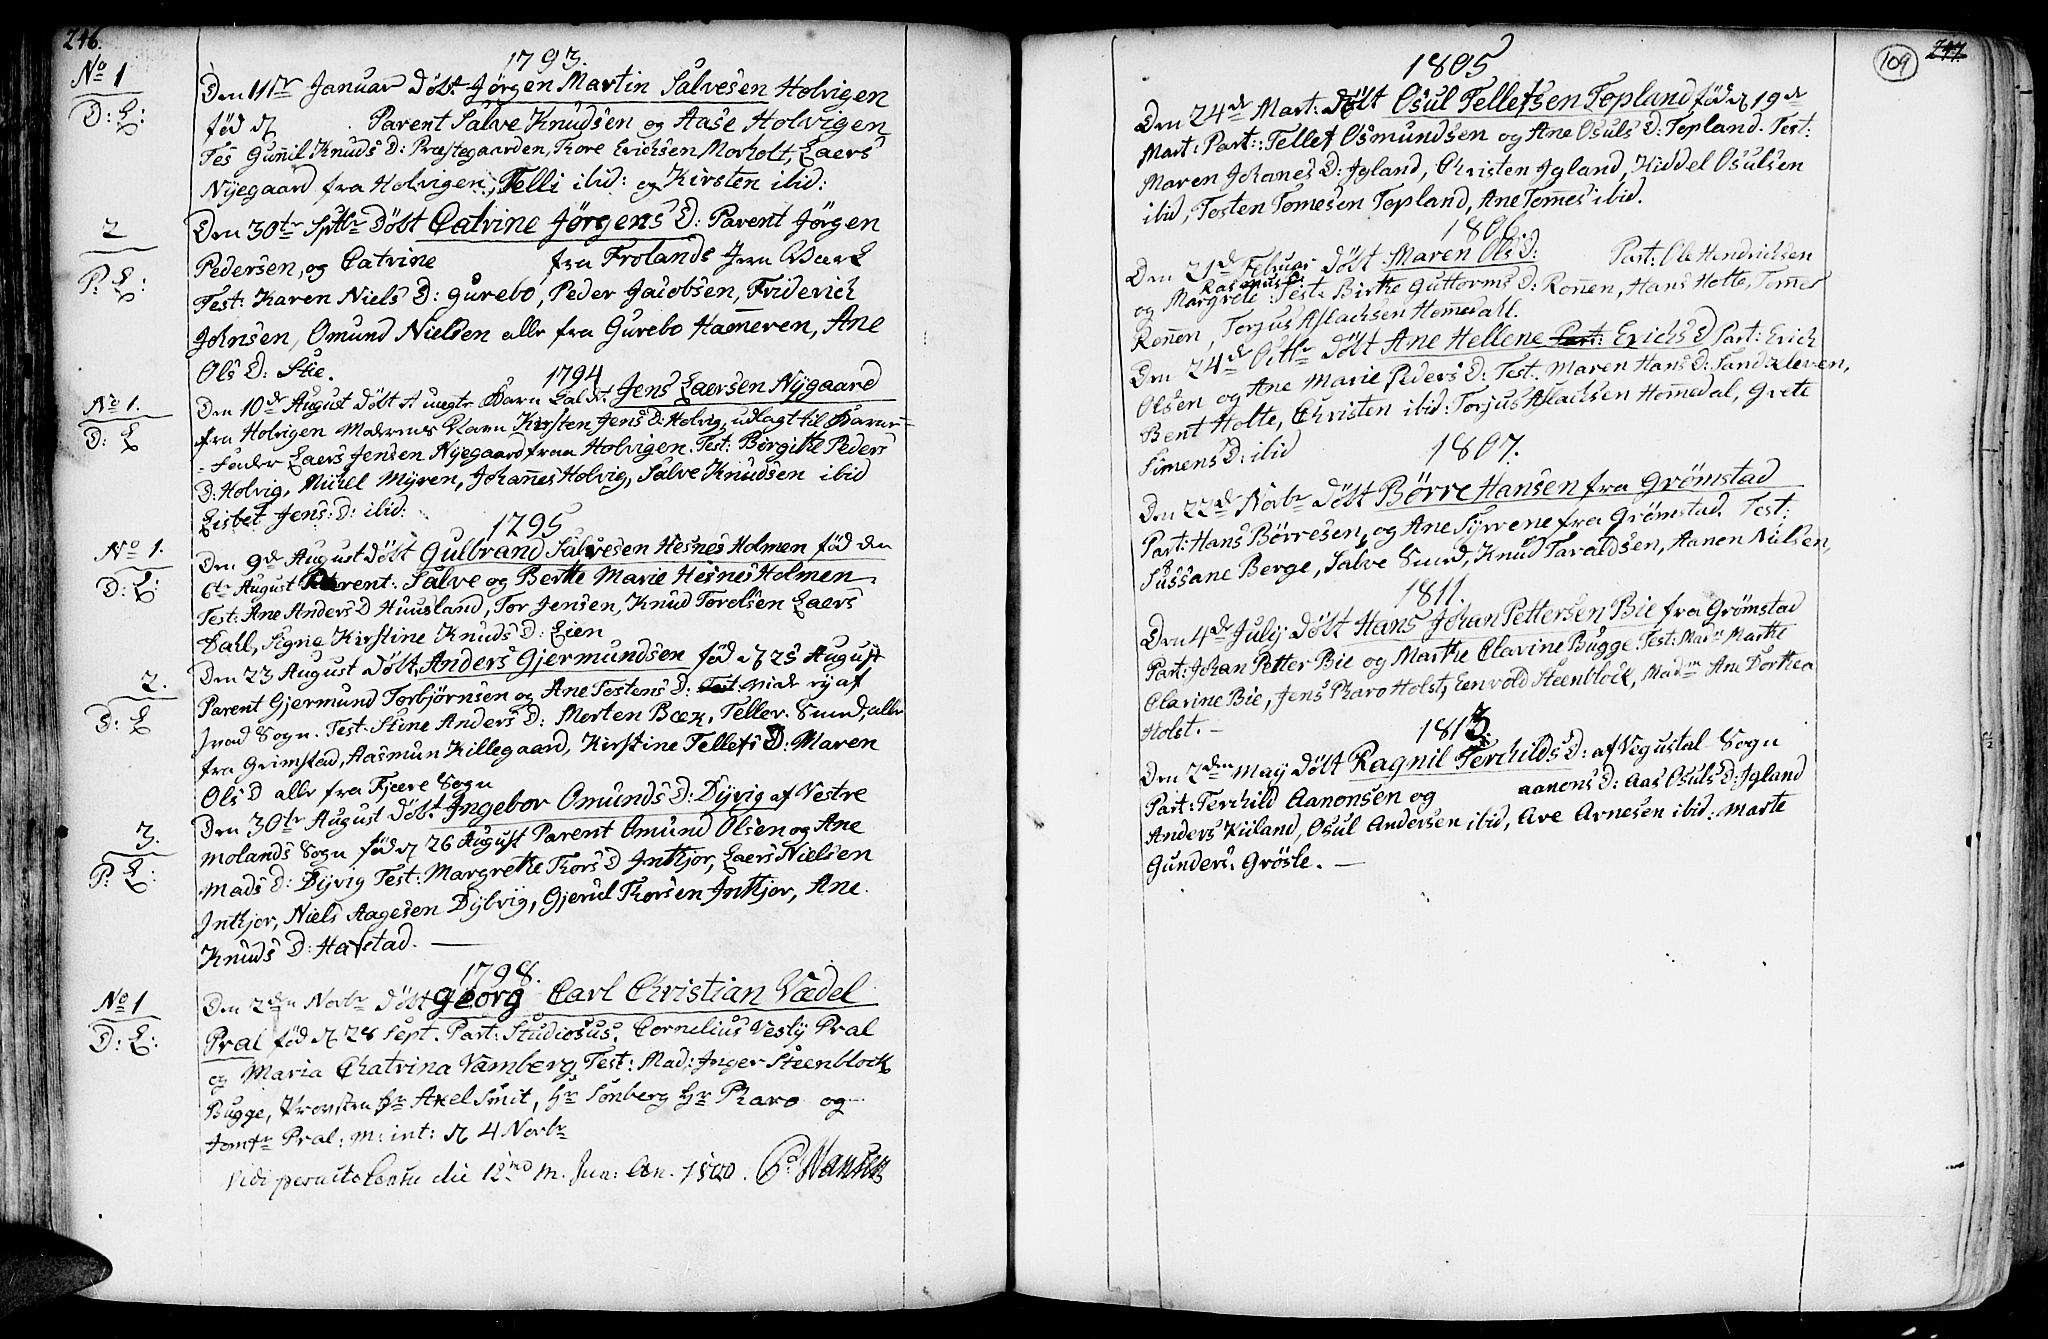 246.
1793.
No 1
Den 11te Januar Döbt Jörgen Martin Salvesen Holvigen
D: L:
föd d Parent Salve Knudsen og Aase Holvigen
Tes Gunnil Knuds D: Præstegaarden, Tore Erichsen Morholt, Laers
Nyegaard fra Holvigen, Telli ibid: og Kirsten ibid:
2
Den 30te Sptbr Döbt Catrine Jörgens D: Parent Jörgen
P: L:
Pedersen, og Catrine fra Frolands Jern Værk
Test: Karen Niels D: Gurebo, Peder Jacobsen, Friderich
Johnsen, Omund Nielsen alle fra Gurebo Hammeren, Ane
Ols D: Stie.
1794
No 1.
Den 10de August Döbt et uægte Barn kaldt Jens Laersen Nygaard
D: L
fra Holvigen Moderens Navn Kirsten Jens D: Holvig, udlagt til Barne-
-fader Laers Jensen Nyegaard fraa Holvigen. Test: Birgithe Peders
D: Holvig, Michel Myren, Johannes Holvig, Salve Knudsen ibid
Lisbet Jens: D: ibid:
1795
No 1.
Den 9de August Döbt Gulbrand Salvesen Hesnes Holmen föd den
D: L:
6te August Parent: Salve og Berthe Marie Hesnes Holmen
Test: Ane Anders D Huusland, Tor Jensen, Knud Torelsen Laers
Dahl, Signe Kirstine Knuds D: Eien
2.
Den 23 August Döbt Anders Gjermundsen föd d 25 August
D: L
Parent Gjermund Torbjörnsen og Ane Testens D: Test: af
Sogn. Test. Stine Anders D: Morten Boek, Tellev. Smed, alle
fra Grimstad, Aasmun Killegaard, Kirstine Tellefs D: Maren
Ols D alle fra Fjære Sogn
3.
Den 30te August Döbt Ingebor Omunds D: Dÿvig af Vestre
P: L:
molands Sogn föd d 26 August Parent Omund Olsen og Ane
Mads D: Dÿvig Test: Margrethe Thors D Inthjor, Laers Nielsen
Inthjor, Niels Aagesen Dÿbvig, Gjerul Thorsen Inthjor, Ane
Knuds D: Hafstad.
1798.
No 1
Den 2den Novbr Döbt Georg Carl Christian Vædel
D: L:
Pral föd d 28 Sept. Part: Studiosus. Cornelius Vesly Pral
og Maria Chatrina Vamberg Test: Mad: Inger Steenblock
Bugge, Provsten Hr Axel Smit, Hr Sonberg Hr Pharo og
Jomfr Pral: m: int: d 4 Novbr
Vidi die 12 m. Jun: An. 1800. P: Hansen
247.
109
1805
Den 24de Mart: Döbt Osul Tellefsen Topland föd d 19de
Mart: Part: Tellef Osmundsen og Ane Osuls D: Topland. Test:
Maren Johanes D: Igland, Christen Igland, Kiddel Osulsen
ibid, Tosten Tomesen Topland, Ane Tomes ibid.
1806.
Den 21de Februar Döbt Maren Ols D: Part: Ole Hendrichsen
Rasmus D
og Margrete Test: Birthe Guttorms D: Ronnen, Hans Holte, Tomes
Ronnen, Torjus Aslachsen Homedall.
Den 24de Octbr Döbt Ane Hellene Part: Erichs D Part: Erich
Olsen og Ane Marie Peders D: Test: Maren Hans D: Sandkleven,
Bent Holte, Christen ibid: Torjus Aslachsen Homedal, Grete
Simens D: ibid
1807.
Den 22de Novbr Döbt Börre Hansen fra Grömstad
Part: Hans Börresen, og Ane Syvene fra Grömstad. Test:
Sussane Berge, Salve Smed, Knud Taraldsen, Aanen Nielsen,
1811.
Den 4de July Döbt Hans Johan Pettersen Bie fra Grömstad
Part: Johan Petter Bie og Marthe Clavine Bugge. Test: Madm Marthe
Clavine Bie, Jens Pharo Holst, Eenvold Steenblock, Madm Ane Dorthea
Holst. -
1813
Den 2den May Döbt Ragnil Terchilds D: af Vigustal Sogn
Part: Terchild Aanonsen og aanons D: Aas Osuls D: Igland
Anders Kiiland, Osul Andersen ibid, Are Arnesen ibid: Marte
Gunders: Grösle. -